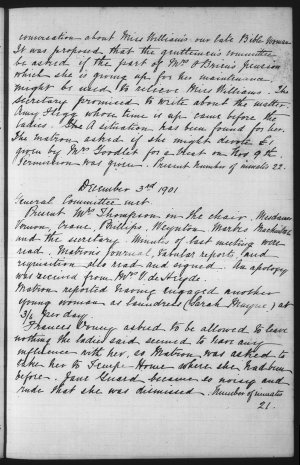 conversation about Miss Williams our late Bible Woman
It was proposed that the gentlemen's committee
be asked if the part of Mrs O'Brien's pension
which she is giving up for her maintenance
might be used to relieve Miss Williams. The
secretary promised to write about the matter.
Amy Flegg whose time is up came before the
ladies. A situation has been found for her.
The matron asked if she might devote £1
given by Mrs for a treat on Nov 9th
Permission was given. Present number of inmates 22.
December 3rd 1901
General Committee met.
Present Mrs Thompson in the chair, Mesdames
Crane, Phillips, Weynton, Marks
and the secretary. Minutes of last meeting were
read. Matrons Journal, tabular reports, and
requisition also read and signed. An apology
was received from Mrs
Matron reported having engaged another
young woman as laundress (Sarah Mayne) at
3/6 per day.
Frances Young asked to be allowed to leave
nothing the ladies said seemed to have any
influence with her, so Matron was asked to
take her to Tempe Home where she had been
before. Jane Guard became so noisy and
rude that she was dismissed. Number of inmates
21.